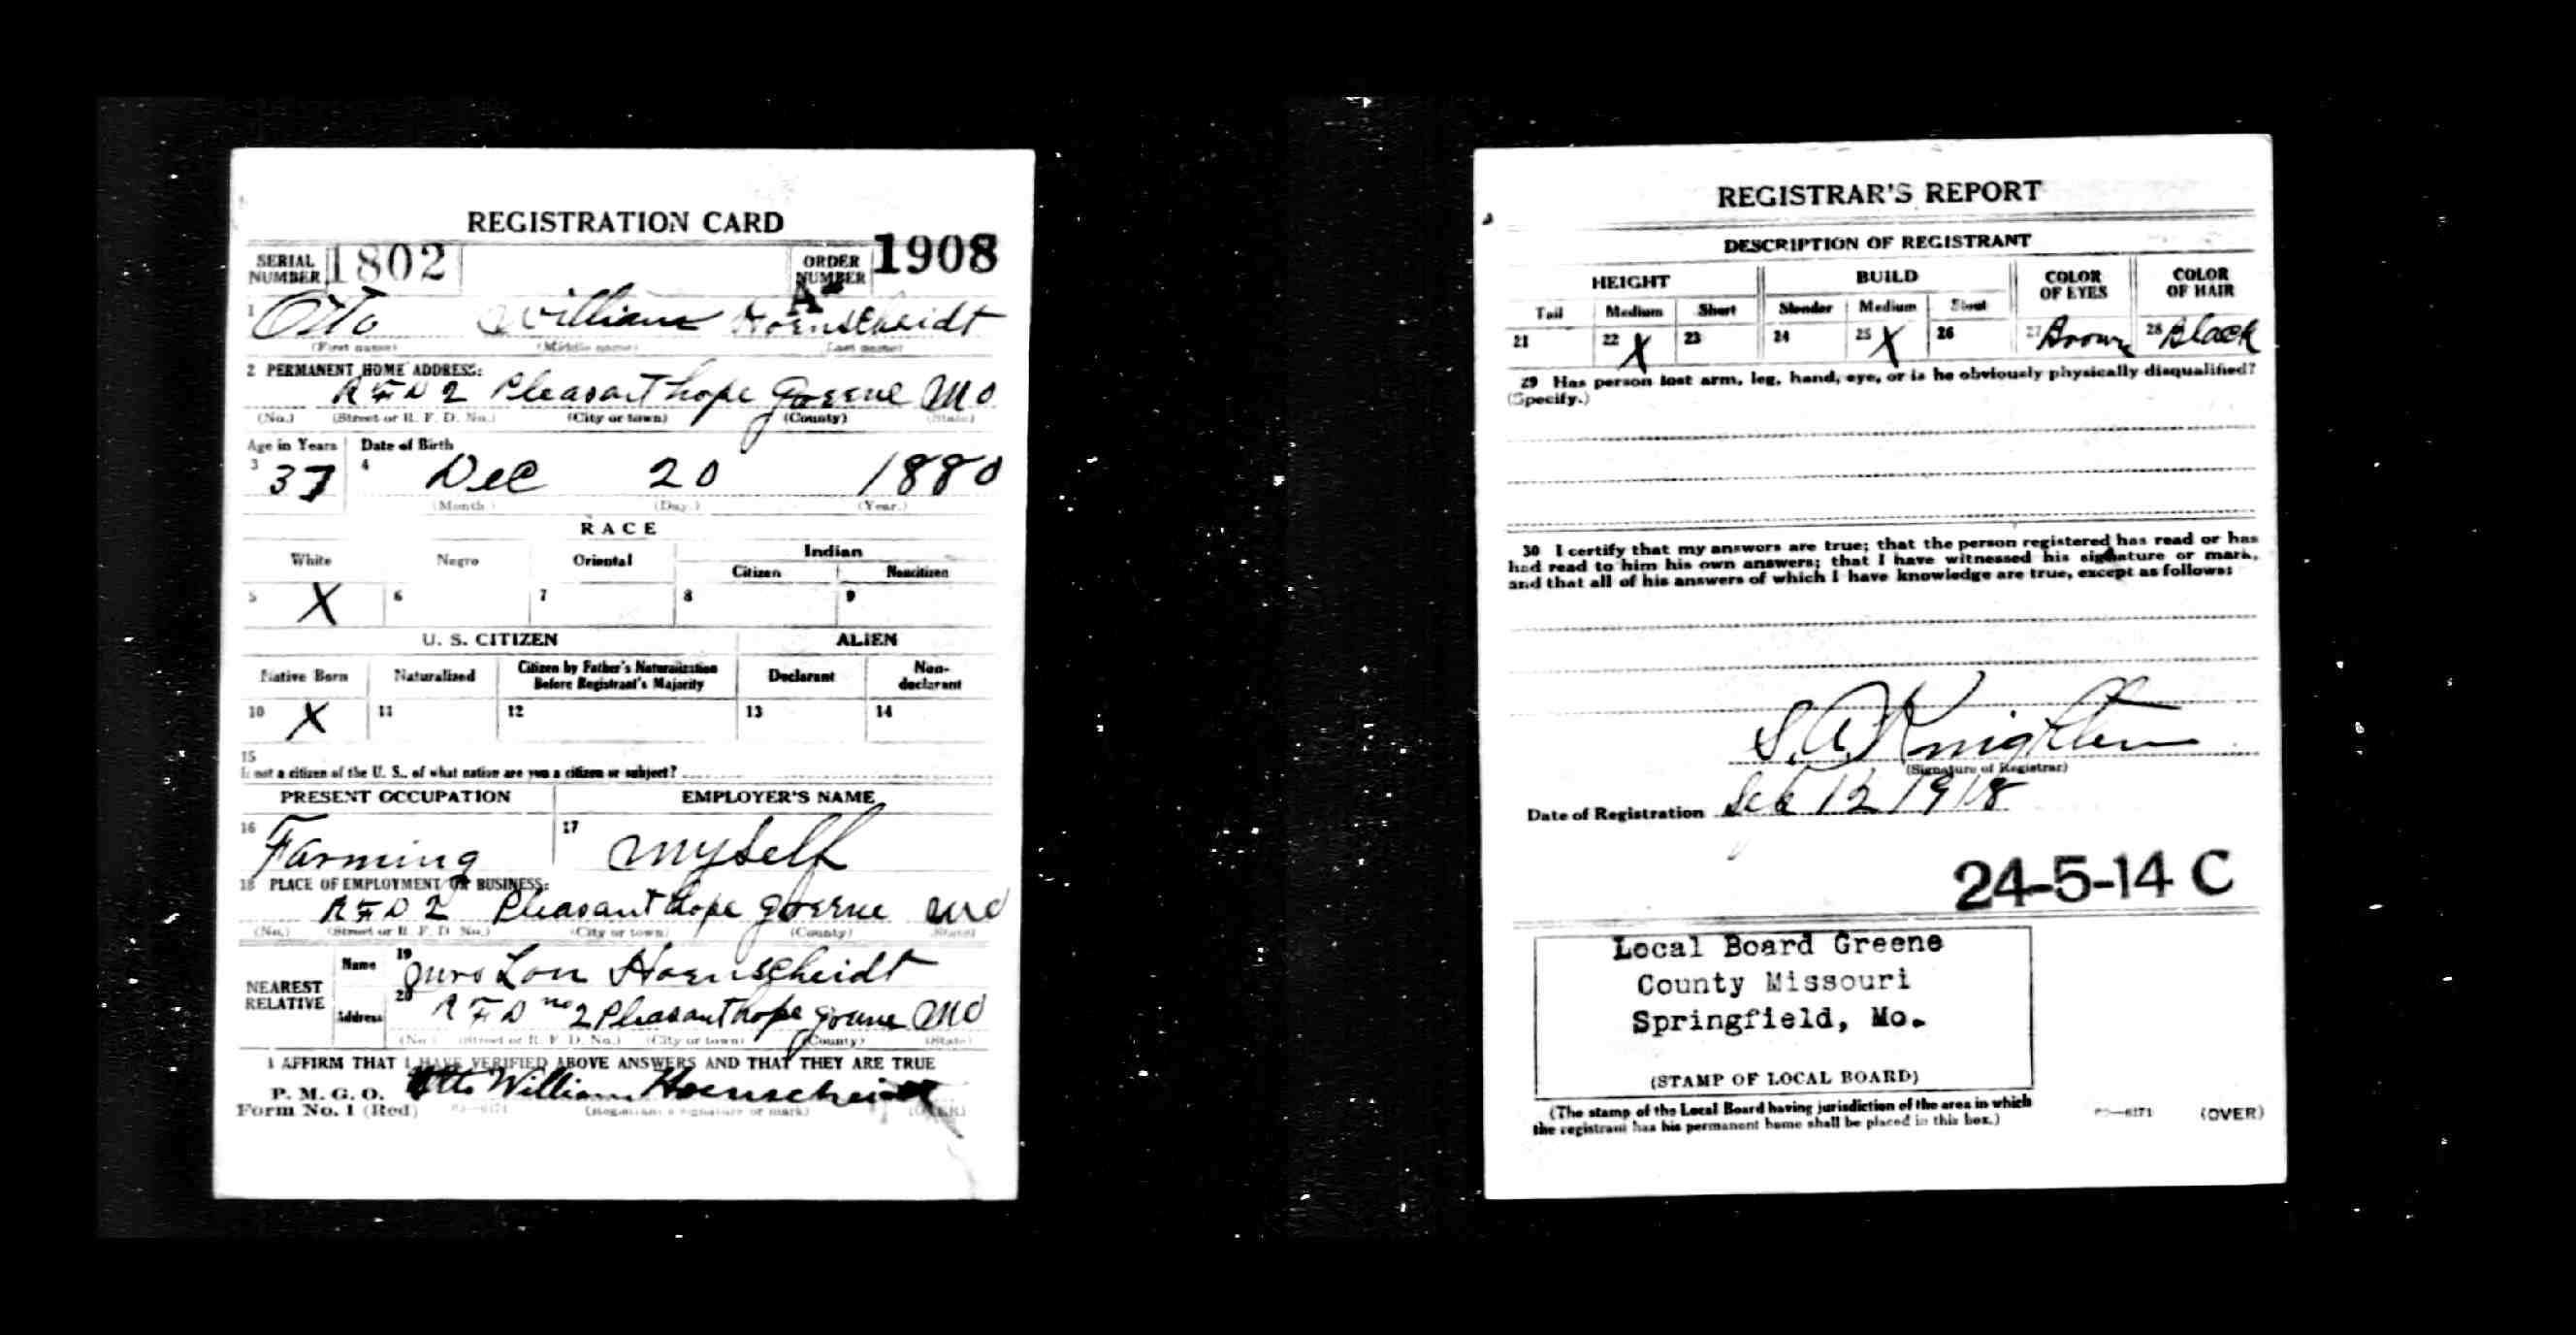 REGISTRATION CARD
SERIAL NUMBER 1802 ORDER NUMBER A 1908
1 Otto William Hoenscheidt
(First name) (Middle name) (Last name)
2 PERMANENT HOME ADDRESS:
R F D 2 Pleasant hope Greene Mo
(No.) (Street or R. F. D. No.) (City or town) (County) (State)
Age in Years Date of Birth
3 37 4 Dec 20 1880
(Month.) (Day.) (Year.)
RACE
White Negro Oriental Indian
Citizen Noncitizen
5 X 6 7 8 9
U. S. CITIZEN ALIEN
Native Born Naturalized Citizen by Father's Naturalization Before Registrant's Majority Declarant Non-declarant
10 X 11 12 13 14
15
If not a citizen of the U. S., of what nation are you a citizen or subject?
PRESENT OCCUPATION EMPLOYER'S NAME
16 Farming 17 myself
18 PLACE OF EMPLOYMENT OR BUSINESS:
R F D 2 Pleasant hope Greene Mo
(No.) (Street or R. F. D. No.) (City or town) (County) (State)
NEAREST RELATIVE Name 19 Mrs Lon Hoenscheidt
Address 20 R F D no 2 Pleasant hope Greene Mo
(No.) (Street or R. F. D. No.) (City or town) (County) (State)
I AFFIRM THAT I HAVE VERIFIED ABOVE ANSWERS AND THAT THEY ARE TRUE
P. M. G. O.
Form No. 1 (Red) Otto William Hoenscheidt
(Registrant's signature or mark) (OVER)
REGISTRAR'S REPORT
DESCRIPTION OF REGISTRANT
HEIGHT BUILD COLOR OF EYES COLOR OF HAIR
Tall Medium Short Slender Medium Stout
21 22 X 23 24 25 X 26 27 Brown 28 Black
29 Has person lost arm, leg, hand, eye, or is he obviously physically disqualified?
(Specify.)
30 I certify that my answers are true; that the person registered has read or has
had read to him his own answers; that I have witnessed his signature or mark,
and that all of his answers of which I have knowledge are true, except as follows:
S. A. Knighten
(Signature of Registrar)
Date of Registration Sep 12 1918
24-5-14 C
Local Board Greene
County Missouri
Springfield, Mo.
(STAMP OF LOCAL BOARD)
(The stamp of the Local Board having jurisdiction of the area in which
the registrant has his permanent home shall be placed in this box.)
(OVER)